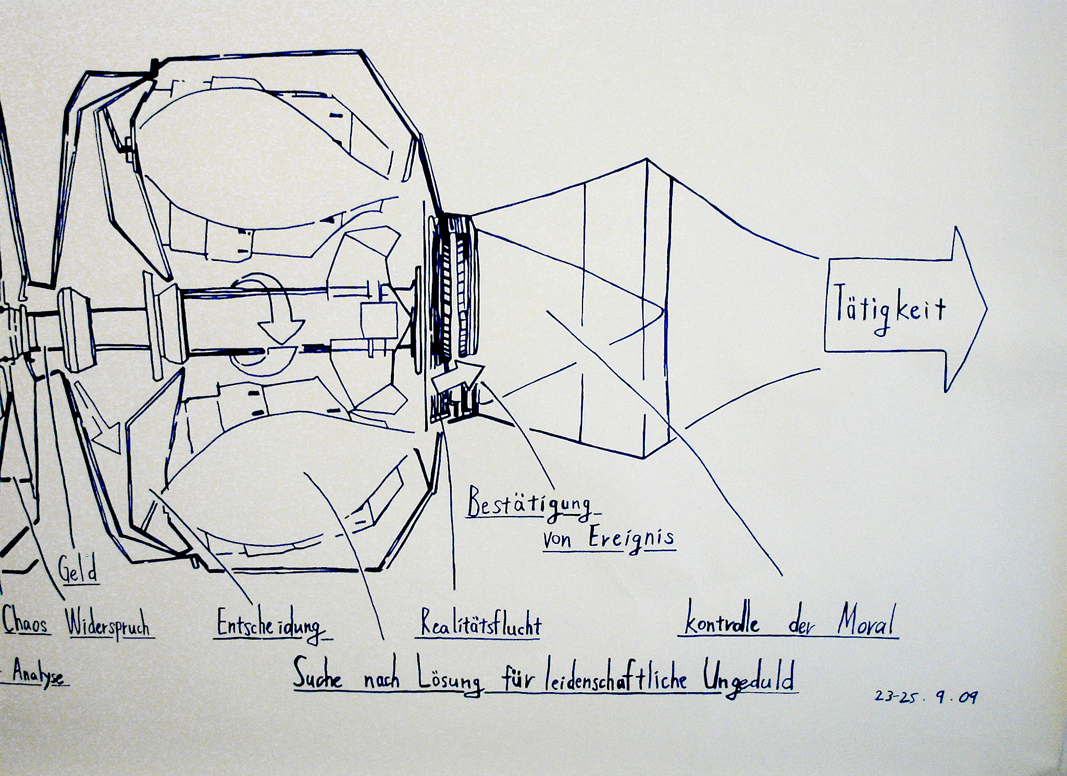 Tätigkeit
Bestätigung
von Ereignis
Geld
Chaos Widerspruch
Entscheidung
Realitätsflucht
kontrolle der Moral
- Analyse
Suche nach Lösung für leidenschaftliche Ungeduld
23-25. 9. 09